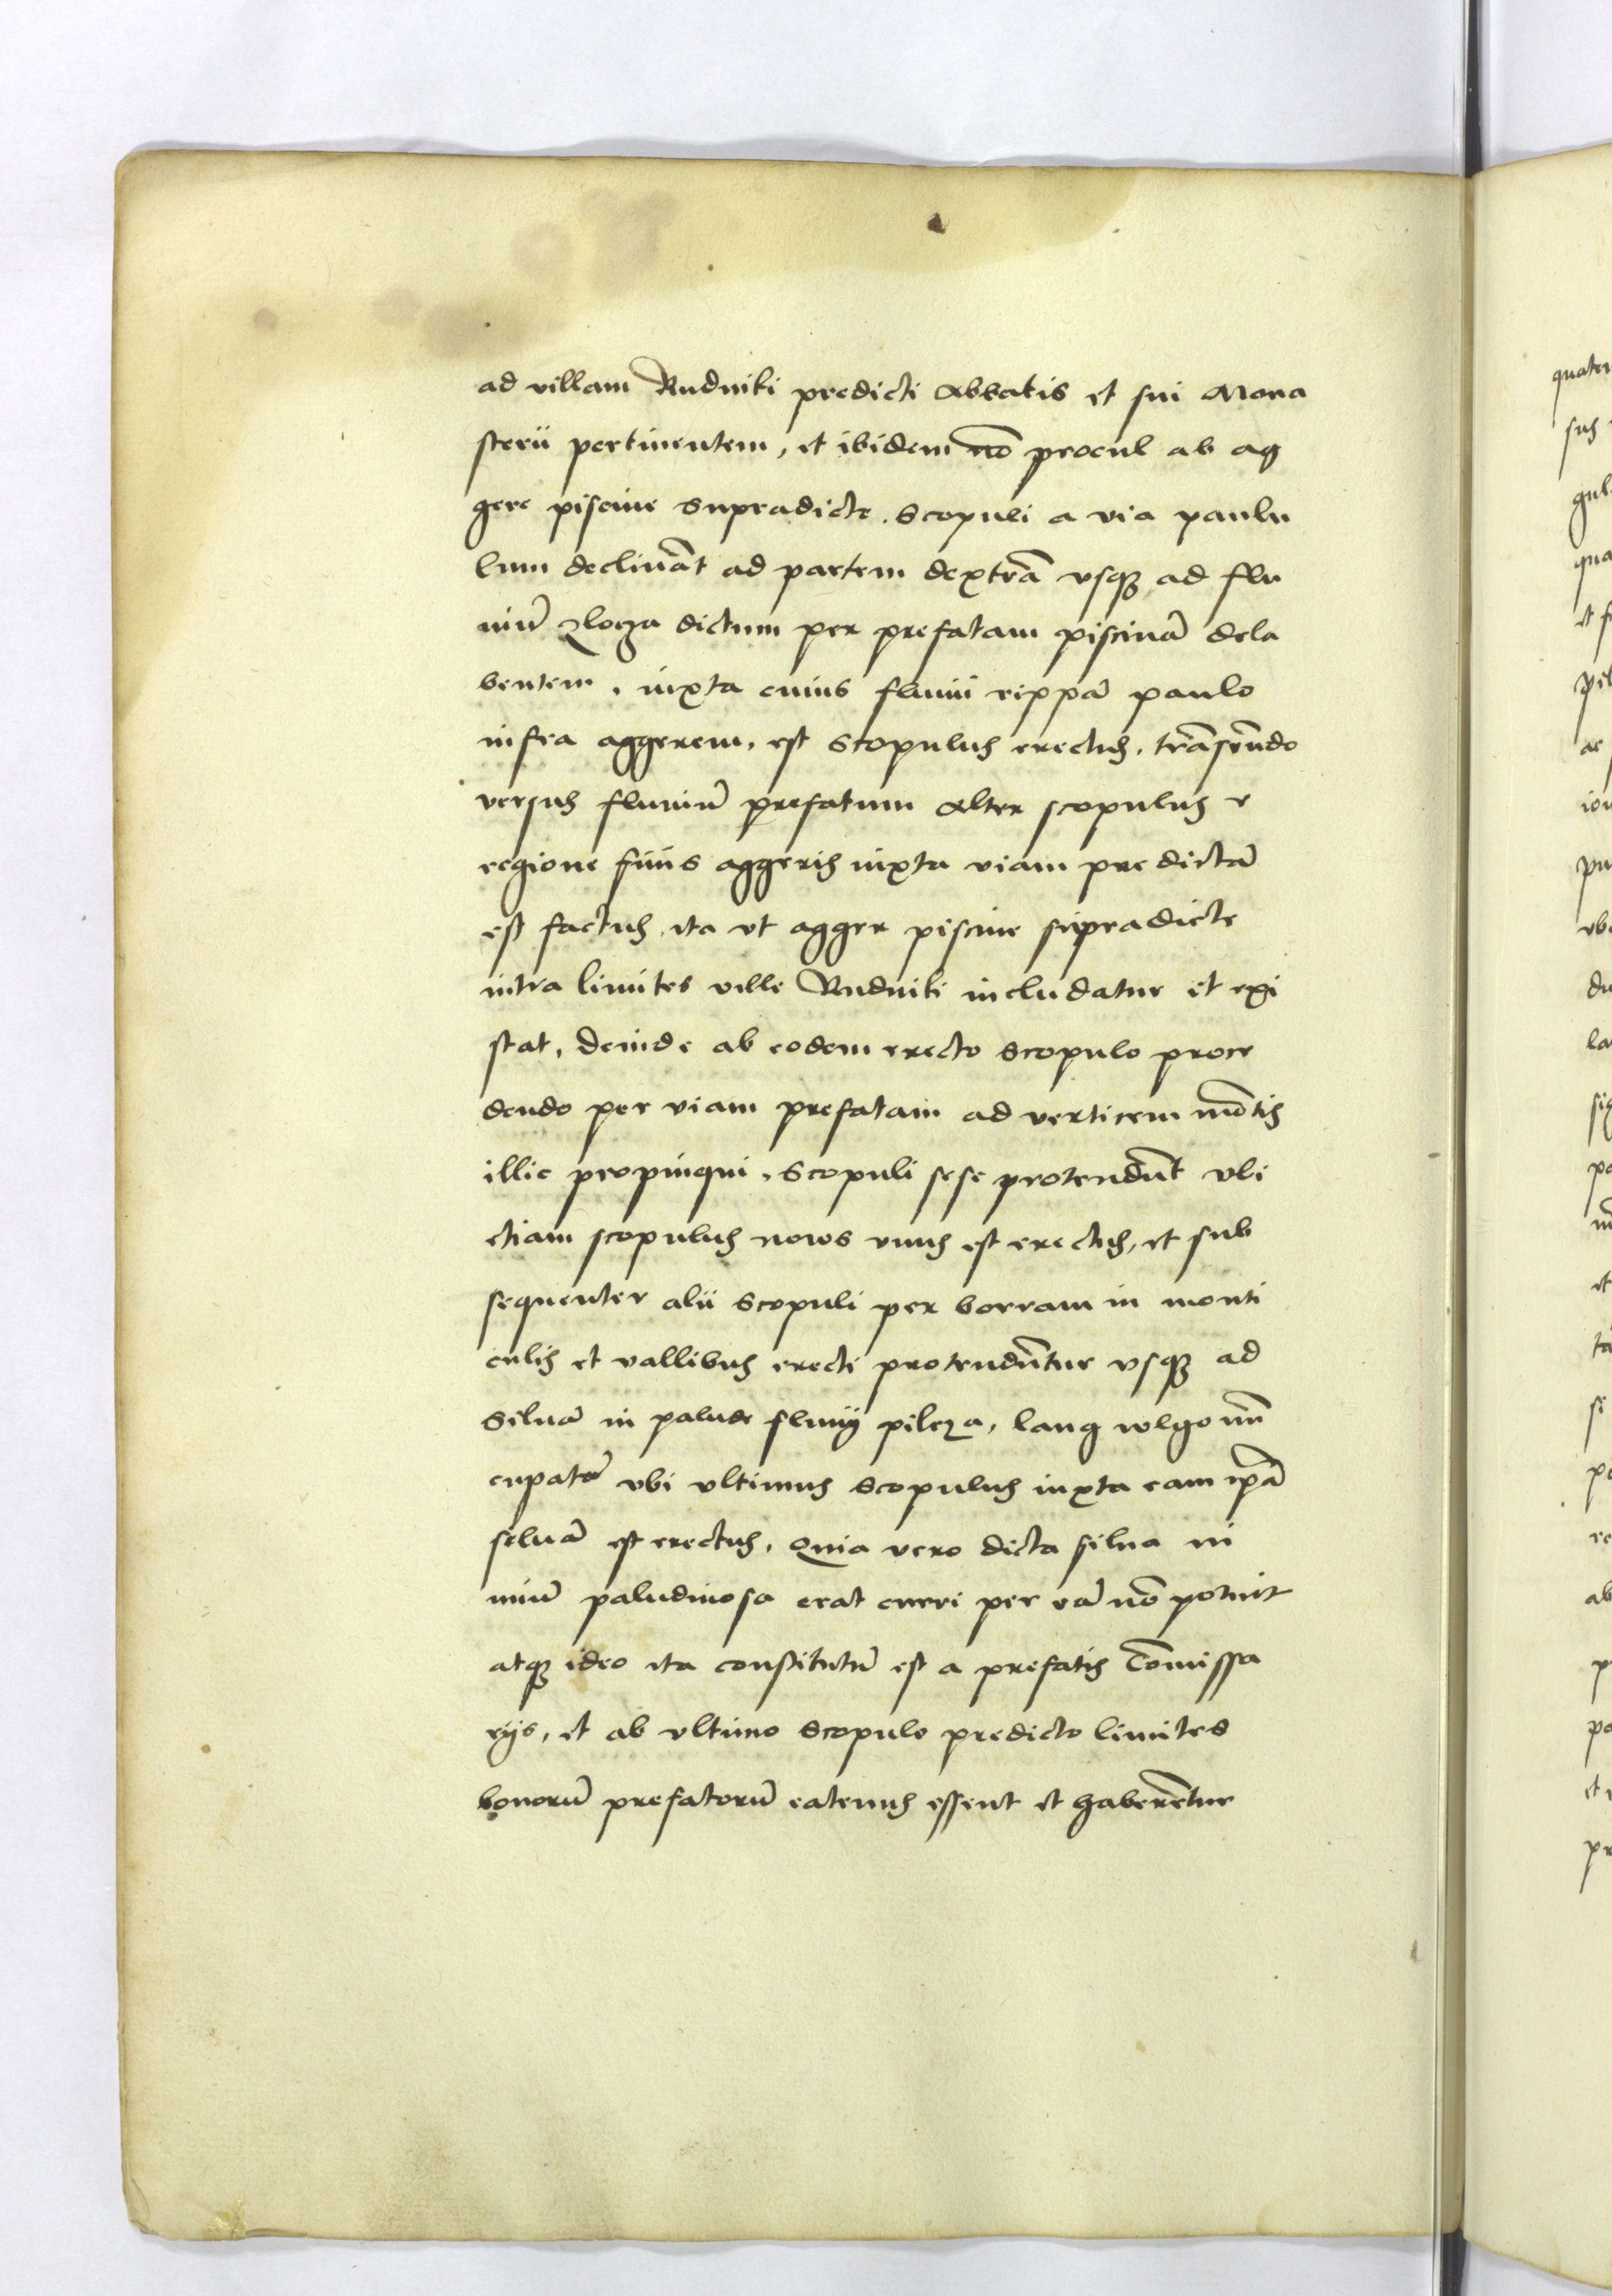 ad villam Rudniki predicti Abbatis et sui Mona
sterii pertinentem, et ibidem nō procul ab ag
gere piscine supradicte. Scopuli a via paulu
lum declinānt ad partem dextrā vsq3 ad flu
uiū zlocza dictum per prefatam piscinā dela
bentem, iuxta cuius fluuii rippā paulo
infra aggerem, est Scopulus erectus, trānseūndo
versus fluuiū prefatum alter scopulus e
regione finis aggeris iuxta viam predictā
est factus, ita vt agger piscine supradicte
intra limites ville Rudniki includatur et exi
stat, deinde ab eodem erecto Scopulo proce
dendo per viam prefatam ad verticem mōtis
illic propinqui, Scopuli sese protendūnt vbi
etiam scopulus nows vnus est erectus, et sub
sequenter alii Scopuli per borram in monti
culis et vallibus erecti protendūntur vsq3 ad
Siluā in palude fluuij pilcza, lang wlgo nūn
cupatā vbi vltimus Scopulus iuxta eam ip̄ā
siluā est erectus, Quia vero dicta silua ni
miū paludinosa erat curri per eā nō potuit
atq3 ideo ita constitutū est a prefatis Cōmissa
rijs, et ab vltimo Scopulo predicto limites
bonorū prefatorū eatenus essent et haberēntur
quater
sus
gul
qua
et f
pil
ac
ion
pu
vb
du
la
sig
pa
et
tā
si
pa
re
ab
p
pa
et
pr